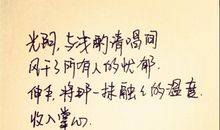 光阴，与浅酌清唱间
风干了所有人的忧郁.
伸手，将那一抹融融的温意
收入掌心.